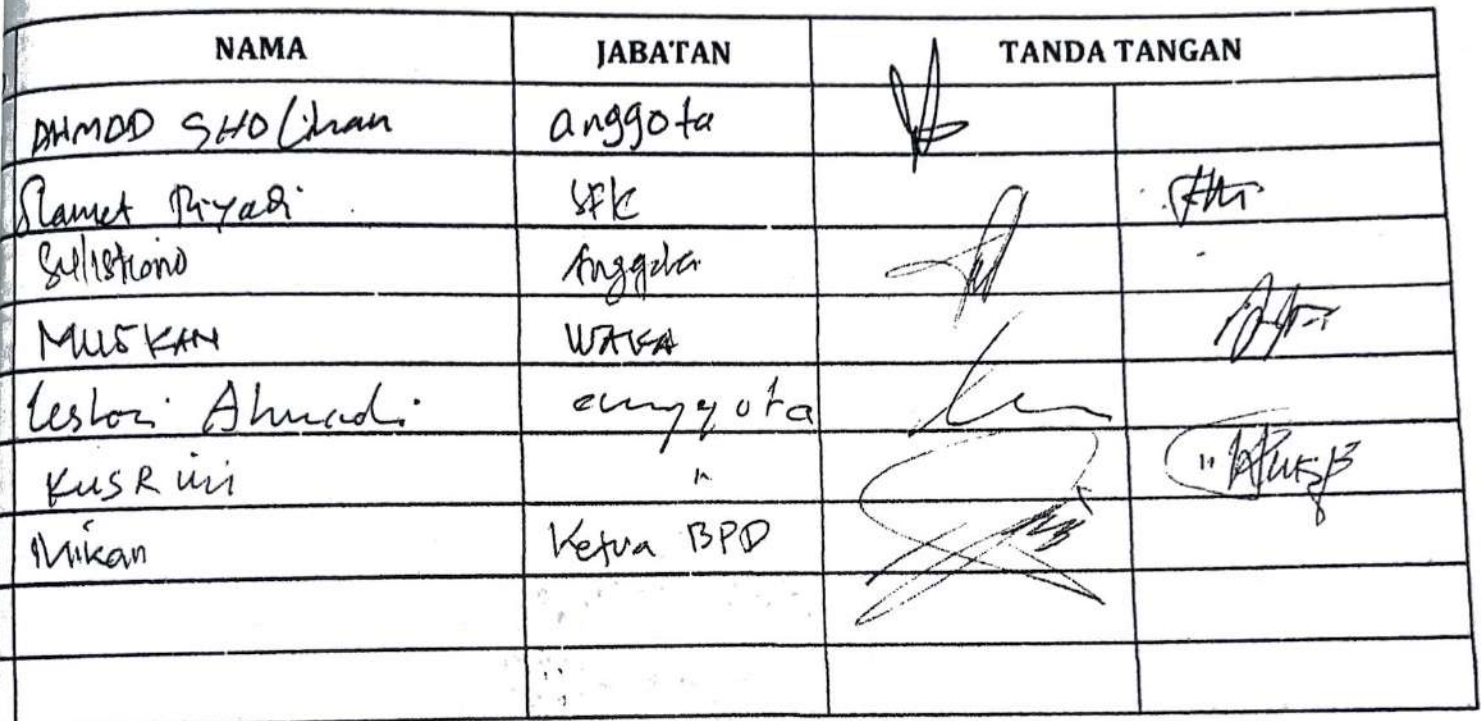 NAMA JABATAN TANDA TANGAN
AHMAD SHOlihan anggota
Slamet Riyadi SEK
Sulistiono Anggota
MUSKAN WAKA
Lestari Ahmadi anggota
KUSRini "
Mikan Ketua BPD